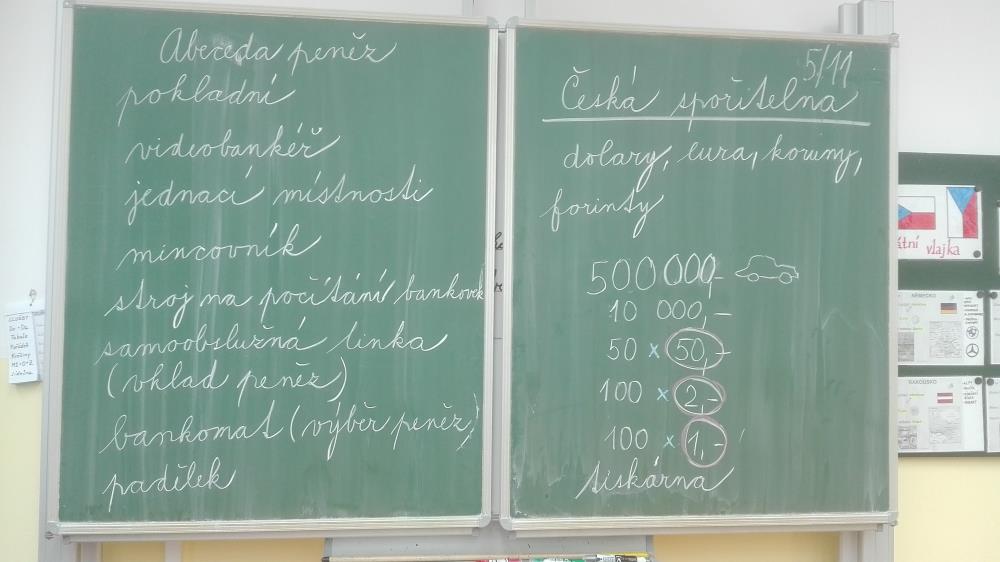 Abeceda peněz
pokladní
videobankéř
jednací místnosti
mincovník
stroj na počítání bankovek
samoobslužná linka
(vklad peněz)
bankomat (výběr peněz)
padělek
5/11
Česká spořitelna
dolary, eura, koruny,
forinty
500 000,-
10 000,-
50 x 50,-
100 x 2,-
100 x 1,-
tiskárna
átní vlajka
NĚMECKO
RAKOUSKO